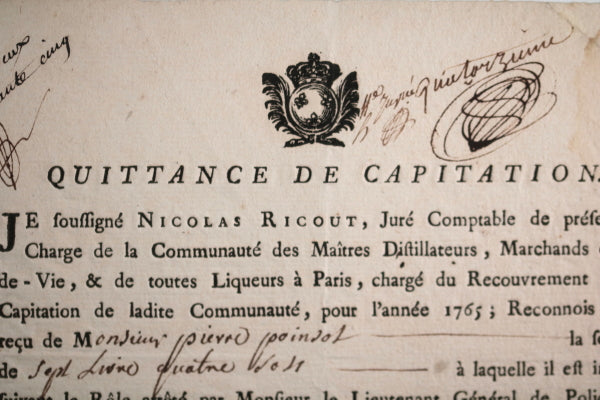 cinq
quatorzieme
QUITTANCE DE CAPITATION.
JE souſſigné NICOLAS RICOUT, Juré Comptable de préſe
Charge de la Communauté des Maîtres Diſtillateurs, Marchands
de-Vie, & de toutes Liqueurs à Paris, chargé du Recouvrement
Capitation de ladite Communauté, pour l'année 1765; Reconnois
reçu de Monsieur pierre poinsot la ſo
de Sept Livre quatre sols à laquelle il eſt im
ſuivant le Rôle arrêté par Monſieur le Lieutenant Général de Polic